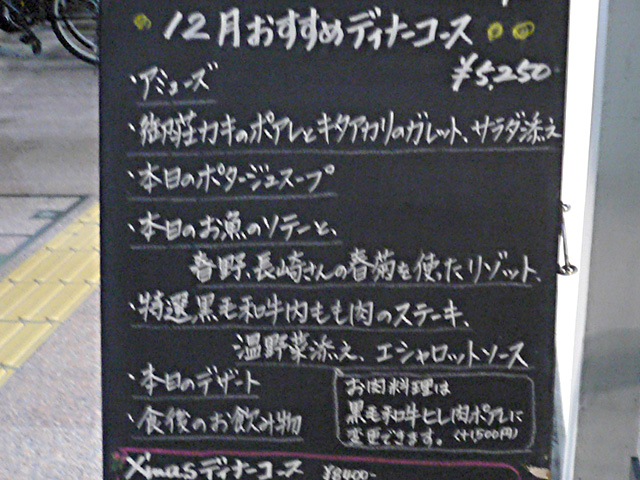 12月おすすめディナーコース
¥5,250
・アミューズ
・御内荘カキのポアレとキタアカリのガレット、サラダ添え
・本日のポタージュスープ
・本日のお魚のソテーと、
春野、長崎さんの春菊を使ったリゾット、
・特選黒毛和牛内もも肉のステーキ、
温野菜添え、エシャロットソース
・本日のデザート
・食後のお飲み物
お肉料理は
黒毛和牛ヒレ肉ポアレに
変更できます。(+1,500円)
X'masディナーコース ¥8400-